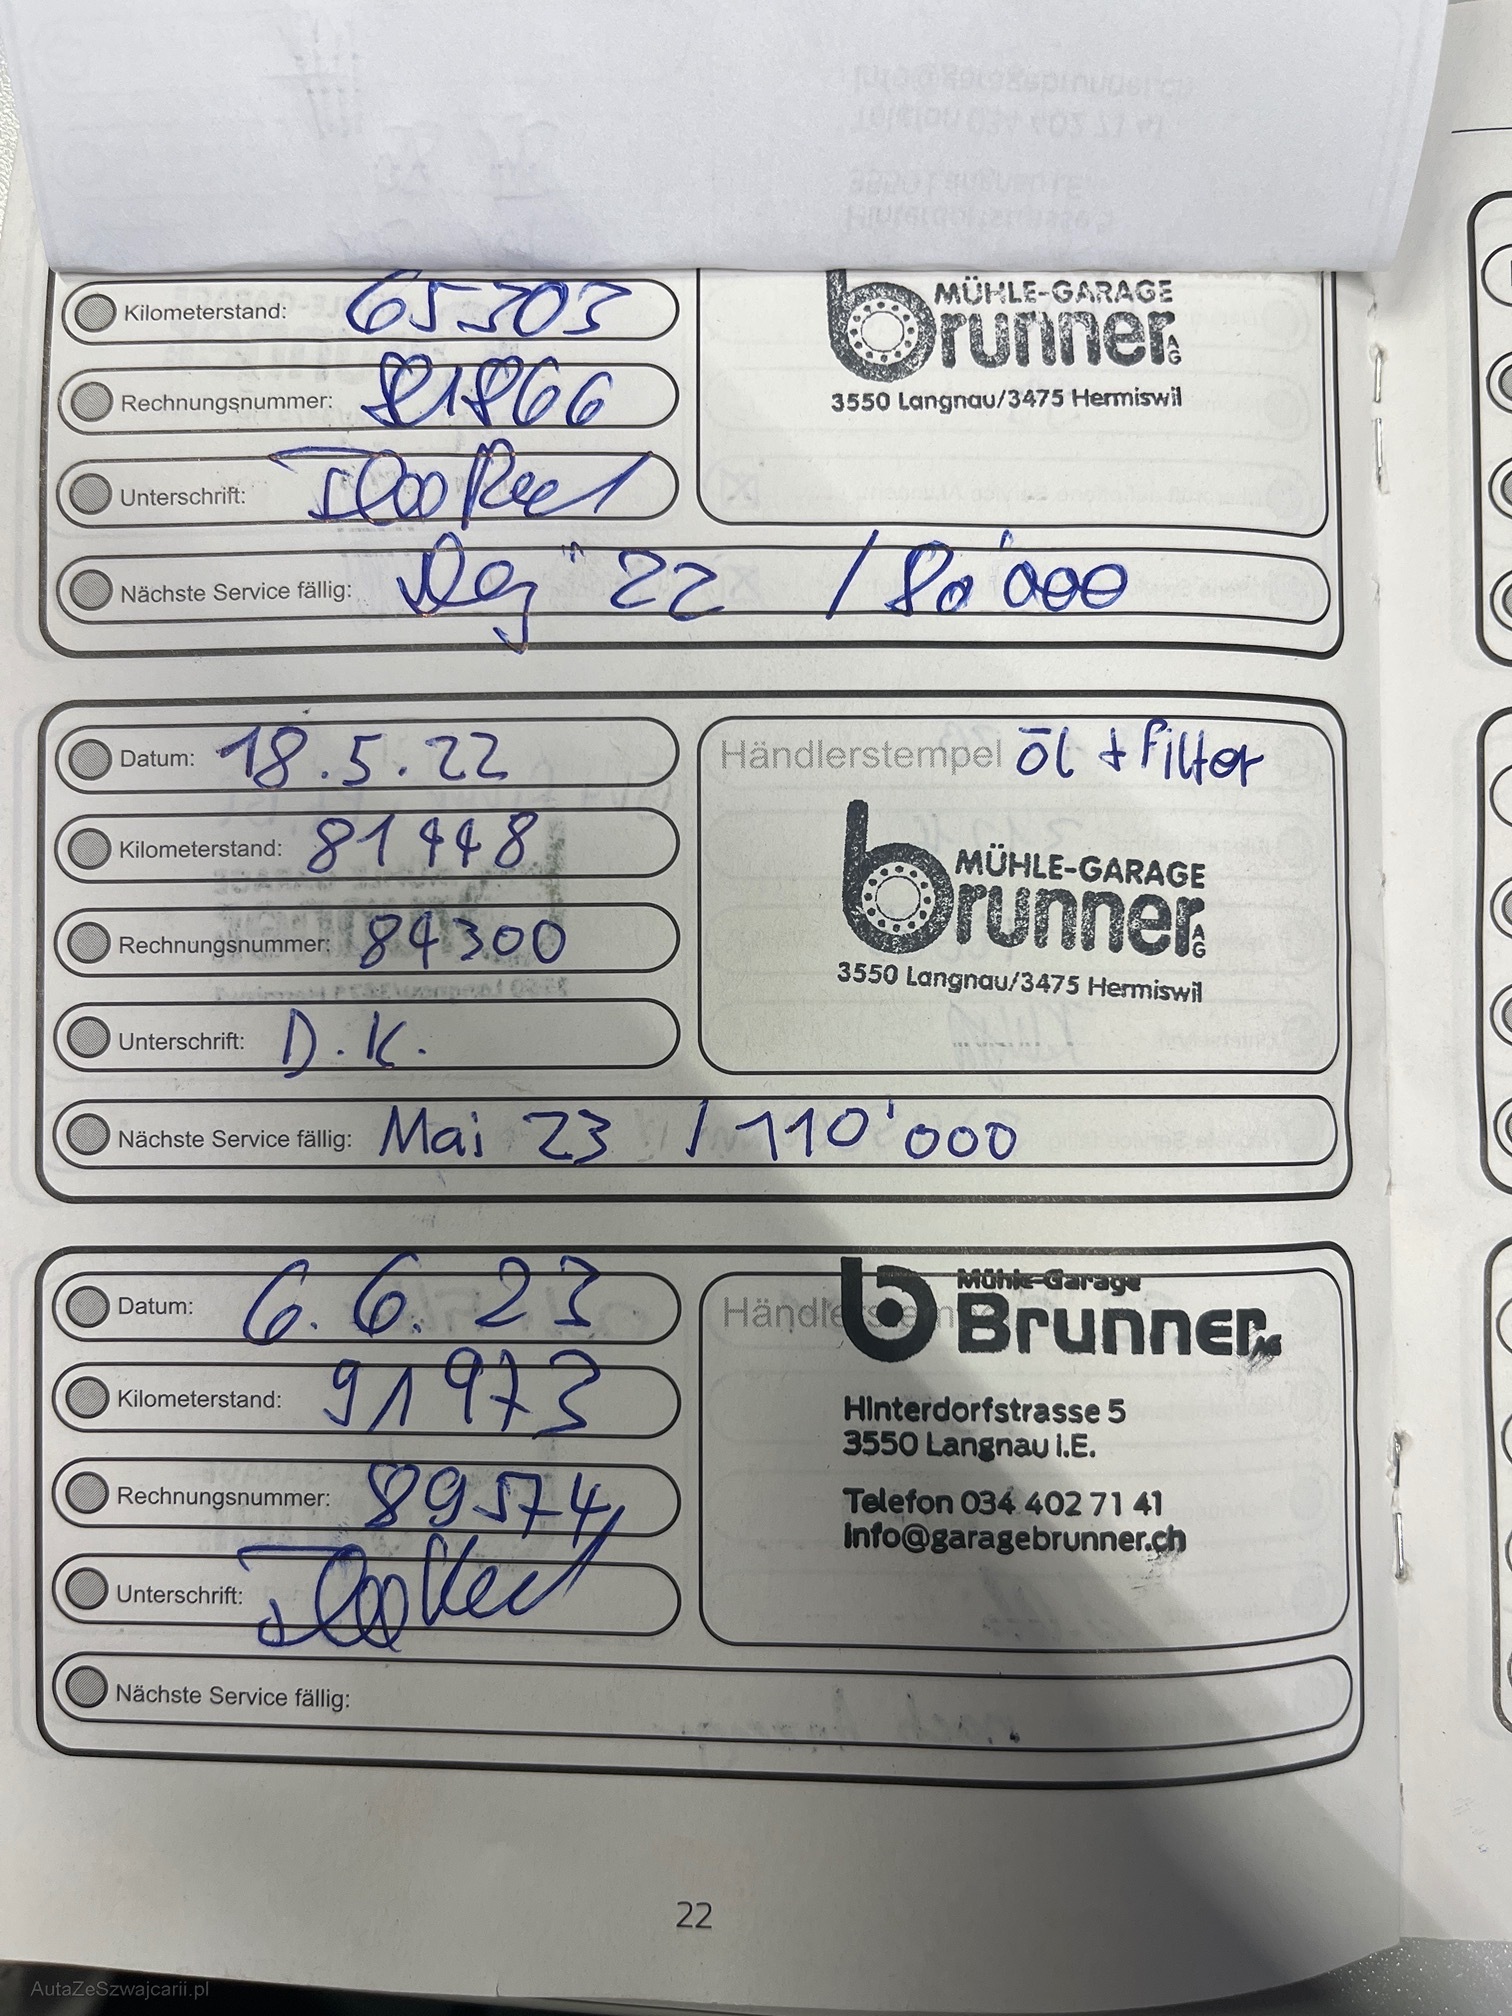 Kilometerstand: 65303
MÜHLE-GARAGE
brunner AG
3550 Langnau/3475 Hermiswil
Rechnungsnummer: 81866
Unterschrift:
Nächste Service fällig: 22 / 80'000
Datum: 18.5.22
Händlerstempel öl + filter
Kilometerstand: 81448
MÜHLE-GARAGE
brunner AG
3550 Langnau/3475 Hermiswil
Rechnungsnummer: 84300
Unterschrift: D.K.
Nächste Service fällig: Mai 23 / 110'000
Datum: 6.6.23
Händlerstempel
Mühle-Garage
Brunner AG
Kilometerstand: 91973
Hinterdorfstrasse 5
3550 Langnau i.E.
Rechnungsnummer: 89574
Telefon 034 402 71 41
info@garagebrunner.ch
Unterschrift:
Nächste Service fällig:
22
AutaZeSzwajcarii.pl